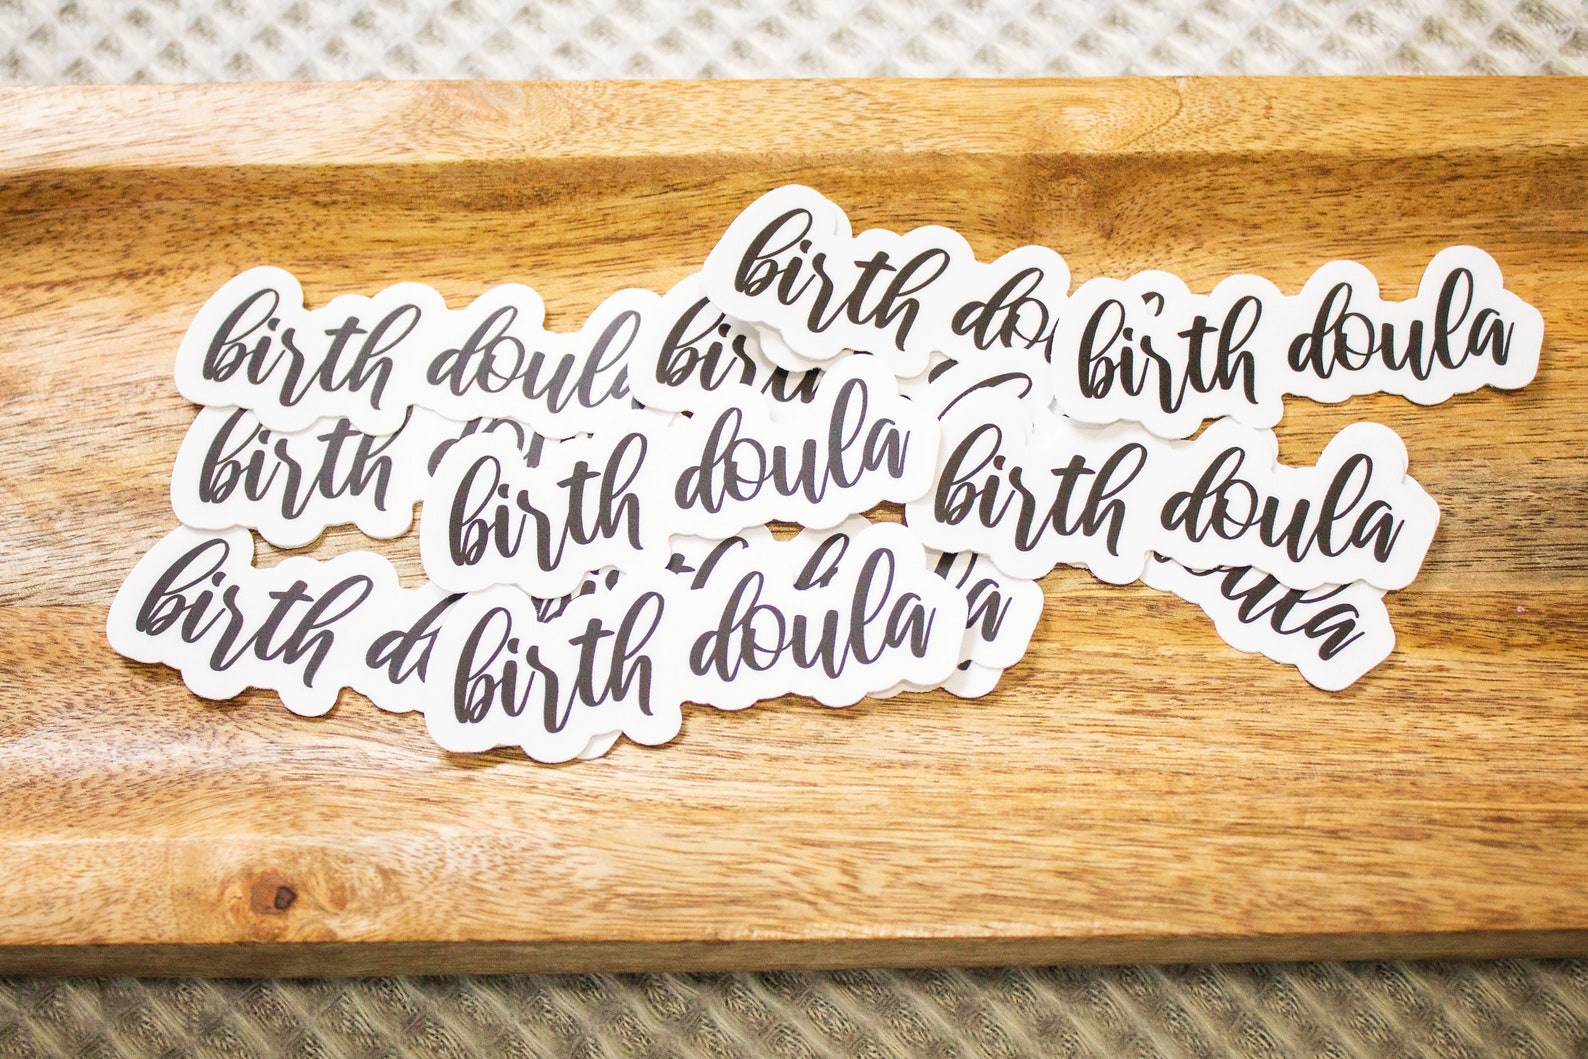 birth doula
birth doula
birth doula
birth
birth doula
birth
birth doula
birth doula
birth
birth doula
doula